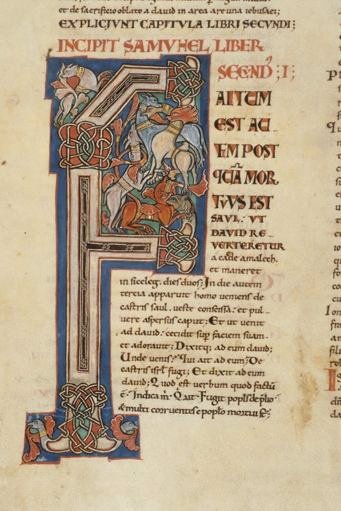 de sacrificio oblato a david in area areuna iebusei;
EXPLICIUNT CAPITULA LIBRI SECUNDI;
INCIPIT SAMUHEL LIBER
SECUND; I;
F
AITUM
EST AU
TEM POST
QUA MOR
TUUS EST
SAUL. UT
DAVID RE
VERTERETUR
a cede amalech.
et maneret
in siceleg. dies duos; In die autem
tercia apparuit homo veniens de
castris saul. veste conscissa. et pul
vere aspersus caput; Et ut venit
ad david. cecidit sup faciem suam.
et adoravit; Dixitq; ad eum david;
Unde venis? Qui ait ad eum; De
castris isrl fugi; Et dixit ad eum
david; Quod est verbum quod factu
ē. Indica m. Qui ait Fugit popls de plio
& multi corruentes e poplo mortui s̄;